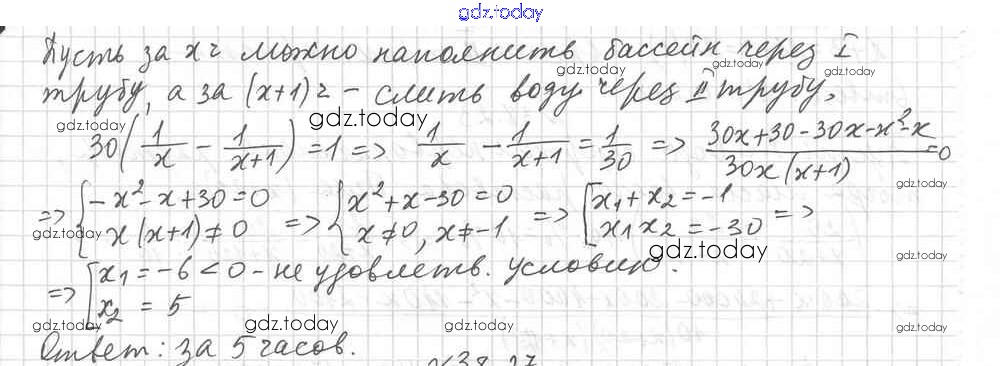 gdz.today
Пусть за x ч можно наполнить бассейн через I
gdz.today gdz.today
трубу, а за (x+1) ч - слить воду через II трубу,
gdz.today gdz.today gdz.today
30(1/x - 1/(x+1)) = 1 => 1/x - 1/(x+1) = 1/30 => (30x+30-30x-x²-x)/(30x(x+1)) = 0
=> { -x²-x+30=0 x(x+1)≠0 => { x²+x-30=0 x≠0, x≠-1 => [ x₁+x₂=-1 x₁x₂=-30 =>
gdz.today gdz.today gdz.today gdz.today
=> [ x₁=-6<0 - не удовлетв. условию.
x₂ = 5
gdz.today gdz.today gdz.today gdz.today
Ответ: за 5 часов.